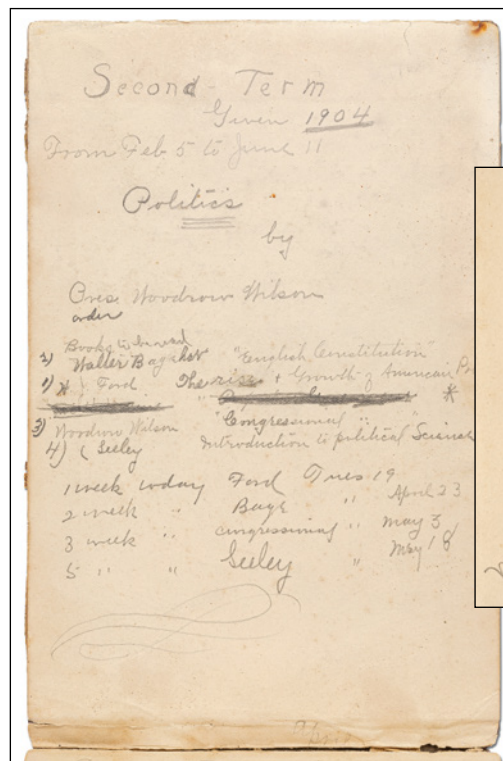 Second - Term
Given 1904
From Feb 5 to June 11
Politics
by
Pres. Woodrow Wilson
order
Books to be read
2) Walter Bagehot "English Constitution"
1) * Ford The rise & Growth of American *
3) Woodrow Wilson "Congressional "
4) ( Seeley Introduction to political Science
1 week today Ford Tues 19
2 week " Bage " April 23
3 week " congressional " May 3
5 " " Seeley " May 18